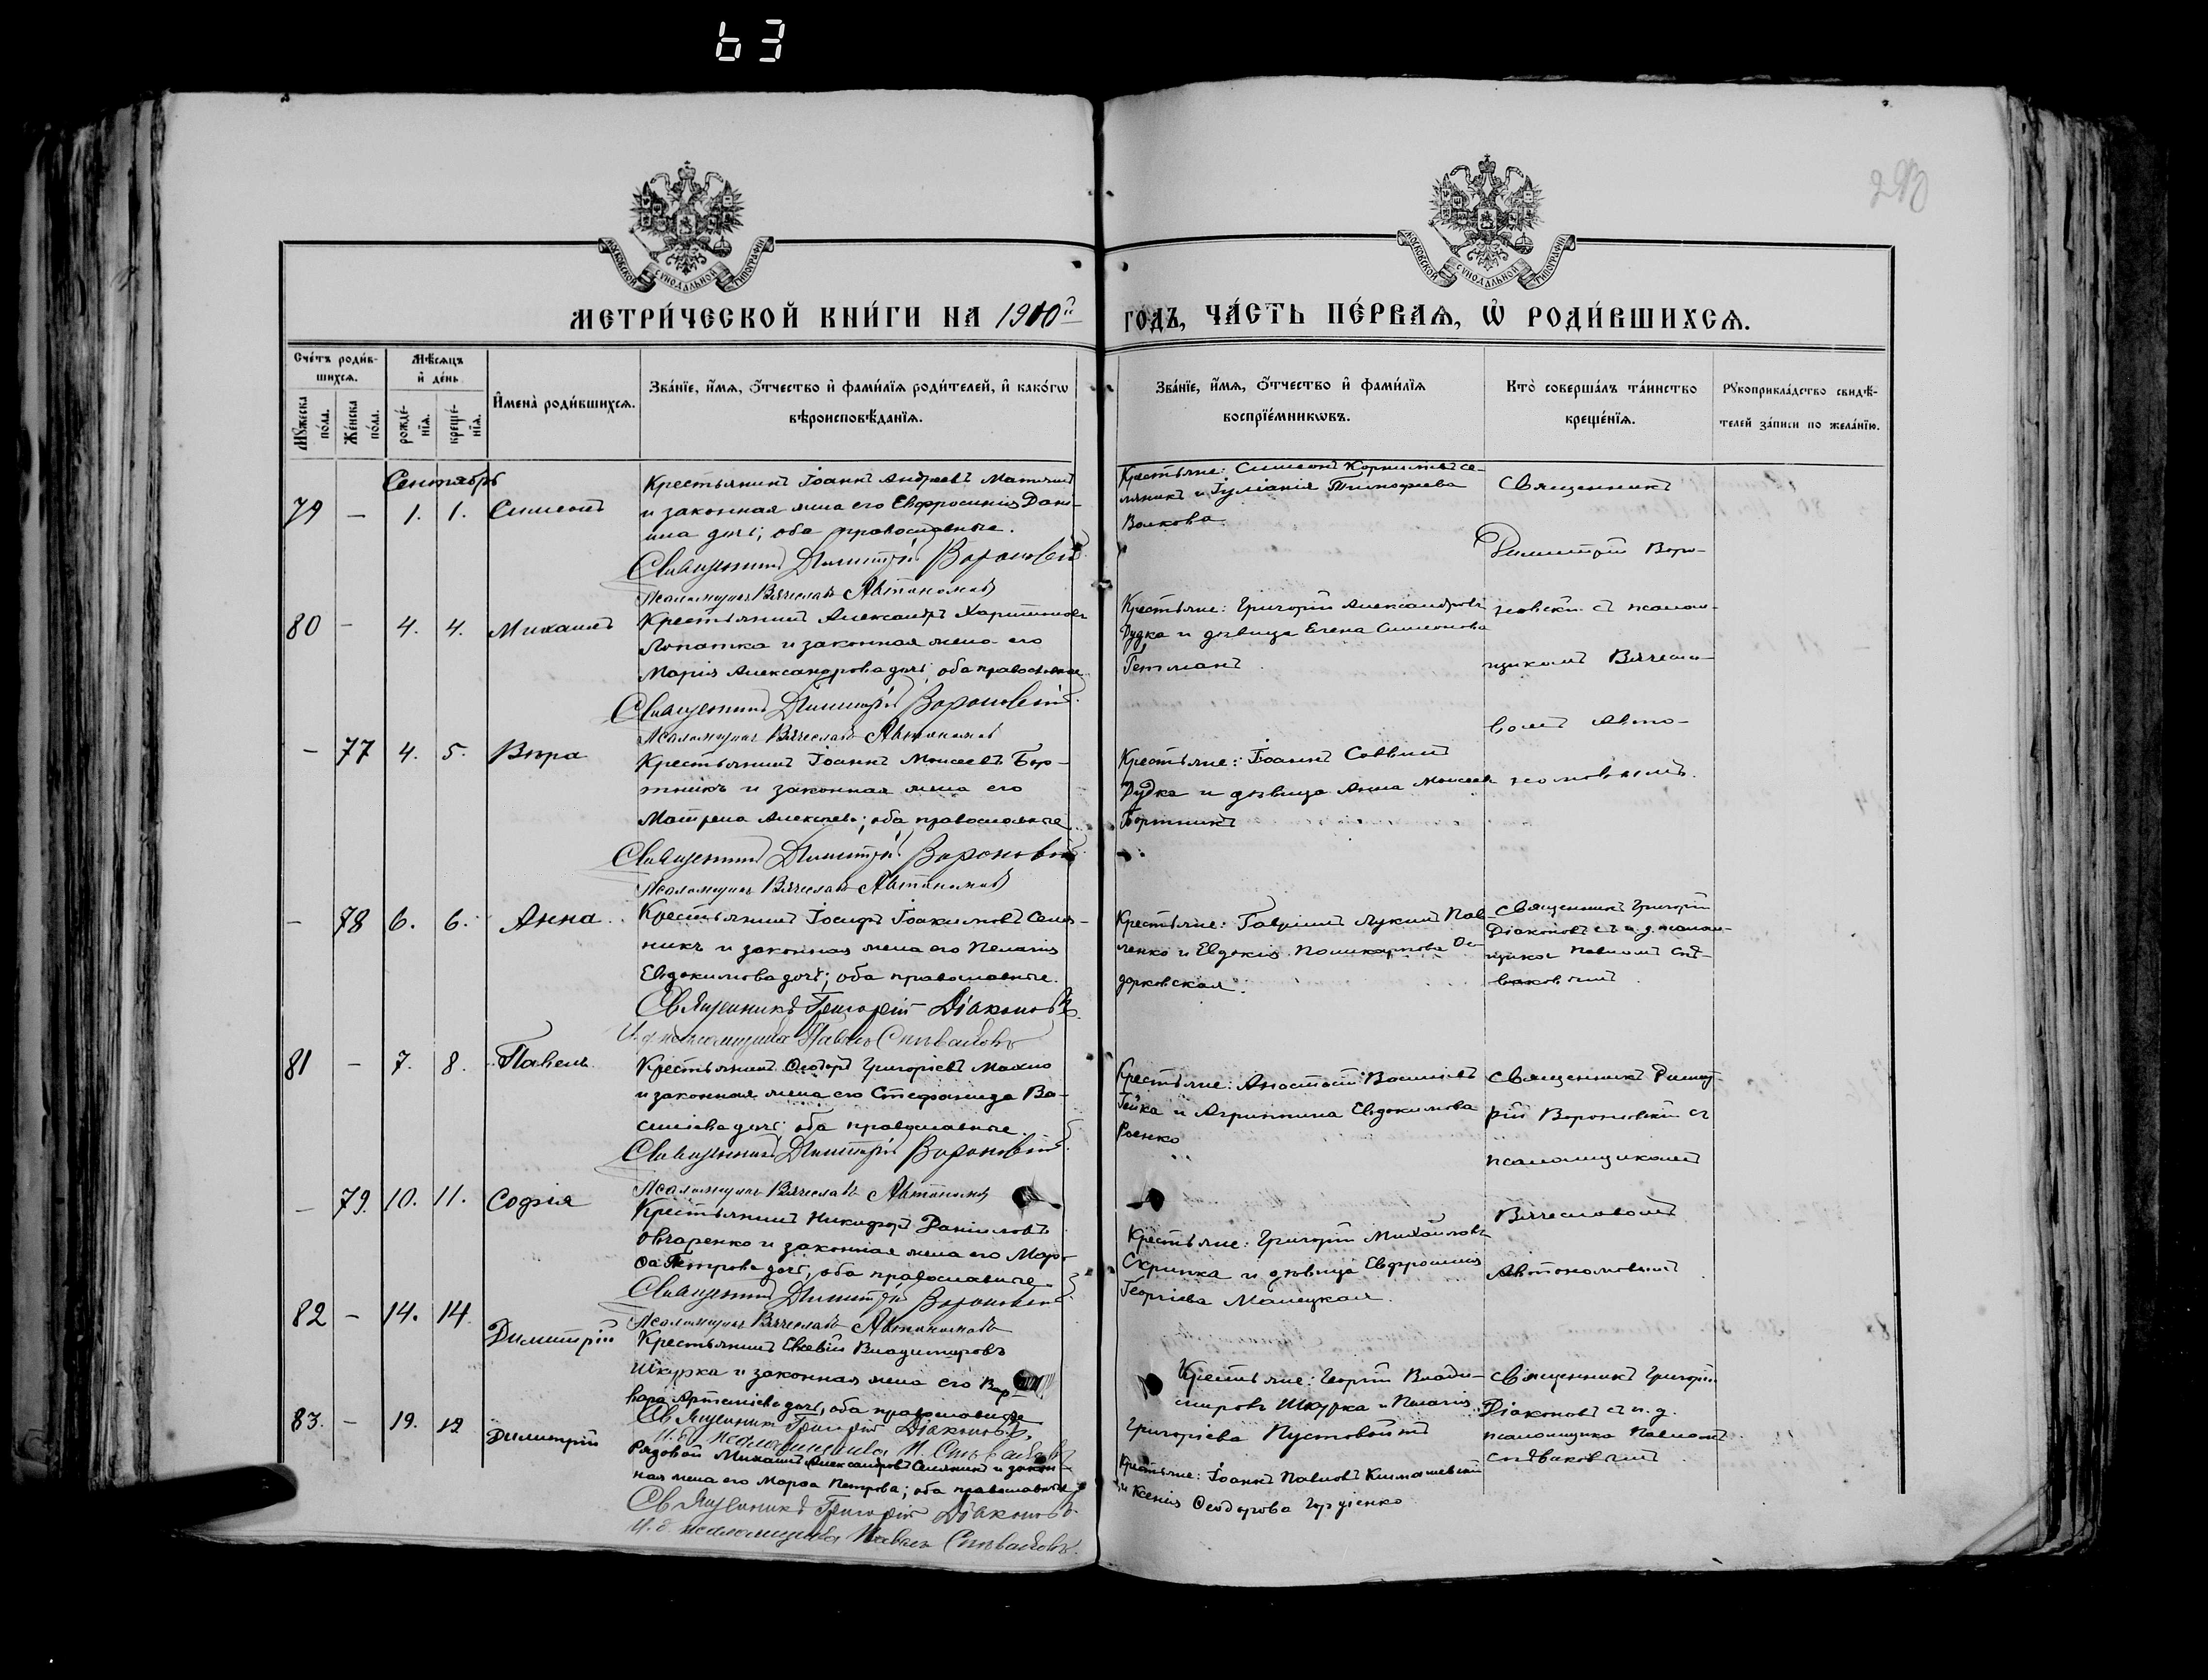 63
290
МОСКОВСКОЙ СУНОДАЛЬНОЙ ТИПОГРАФІИ
МОСКОВСКОЙ СУНОДАЛЬНОЙ ТИПОГРАФІИ
МЕТРИ́ЧЕСКОЙ КНИ́ГИ НА 1910й
ГОДЪ, ЧА́СТЬ ПЕ́РВАѦ, Ѡ҆ РОДИ́ВШИХСѦ.
Сче́тъ роди́в-
шихсѧ.
Мѣ́сѧцъ
и҆ де́нь
Мꙋ́жеска
по́ла.
Же́нска
по́ла.
рожде́-
нїѧ.
креще́-
нїѧ.
И҆мена̀ роди́вшихсѧ.
Зва́нїе, и҆́мѧ, ѻ҆́тчество и҆ фами́лїѧ роди́телей, и҆ како́гѡ
вѣроисповѣ́данїѧ.
Зва́нїе, и҆́мѧ, ѻ҆́тчество и҆ фами́лїѧ
воспрїе́мникѡвъ.
Кто̀ соверша́лъ та́инство
креще́нїѧ.
Рꙋкоприкла́дство свидѣ́-
телей за́писи по жела́нїю.
Сентябрь
79 — 1. 1. Симеонъ
Крестьянинъ Іоаннъ Андреевъ
и законная жена его Евфросинія Дані-
ила дочь; оба православные.
Священникъ Димитрій Вороновскій
Псаломщикъ Вячеславъ Автономовъ
Крестьяне: Симеонъ Корнилiевъ Се-
мяникъ и Іуліанія Тимофеева
Волкова
Священникъ
Димитрій Воро-
новскій съ псалом-
щикомъ Вячесла-
вомъ Авто-
номовымъ.
80 — 4. 4. Михаилъ
Крестьянинъ Александръ Харитоновъ
Лопатка и законная жена его
Марія Александрова дочь; оба православные
Священникъ Димитрій Вороновскій
Псаломщикъ Вячеславъ Автономовъ
Крестьяне: Григорій Александровъ
Дудка и дѣвица Елена Симеонова
Гетманъ.
— 77 4. 5. Вѣра
Крестьянинъ Іоаннъ Моисеевъ Бор-
тникъ и законная жена его
Матрена Алексѣева; оба православные
Священникъ Димитрій Вороновскій
Псаломщикъ Вячеславъ Автономовъ
Крестьяне: Іоаннъ Саввинъ
Дудка и дѣвица Анна Моисеева
Бортникъ
— 78 6. 6. Анна.
Крестьянинъ Іосифъ Іоакимовъ Семя-
никъ и законная жена его Пелагія
Евдокимова дочь; оба православные.
Священникъ Григорій Діаконовъ
И. д. псаломщика Павелъ Спѣваковъ
Крестьяне: Гавріилъ Лукинъ Пав-
ленко и Евдокія Поликарпова
Священникъ Григорій
Діаконовъ съ и. д. псалом-
щика Павломъ Спѣ-
ваковымъ.
81 — 7. 8. Павелъ
Крестьянинъ Ѳеодоръ Григоріевъ Махно
и законная жена его Стефанида Ва-
силіева дочь; оба православные.
Священникъ Димитрій Вороновскій
Псаломщикъ Вячеславъ Автономовъ
Крестьяне: Анастасій Василіевъ
Гейка и Агриппина Евдокимова
Роенко
Священникъ Димит-
рій Вороновскій съ
псаломщикомъ
Вячеславомъ
Автономовымъ
— 79. 10. 11. Софія
Крестьянинъ Никифоръ Даніиловъ
Овчаренко и законная жена его Мар-
ѳа Петрова дочь; оба православные.
Священникъ Димитрій Вороновскій
Псаломщикъ Вячеславъ Автономовъ
Крестьяне: Григорій Михайловъ
Скрипка и дѣвица Евфросинія
Георгіева Малецкая.
82 — 14. 14. Димитрій
Крестьянинъ Евсевій Владиміровъ
Шкурка и законная жена его Вар-
вара Артеміева дочь; оба православные
Священникъ Григорій Діаконовъ
И. д. псаломщика П. Спѣваковъ
Крестьяне: Георгій Влади-
міровъ Шкурка и Пелагія
Григоріева Пустовойтъ
Священникъ Григорій
Діаконовъ съ и. д.
псаломщика Павломъ
Спѣваковымъ.
83. — 19. 19 Димитрій
Рядовой Михаилъ Александровъ Семяникъ и закон-
ная жена его Марѳа Петрова; оба православные
Священникъ Григорій Діаконовъ
И. д. псаломщика Павелъ Спѣваковъ.
Крестьяне: Іоаннъ Павловъ
и Ксенія Ѳеодорова Гордіенко